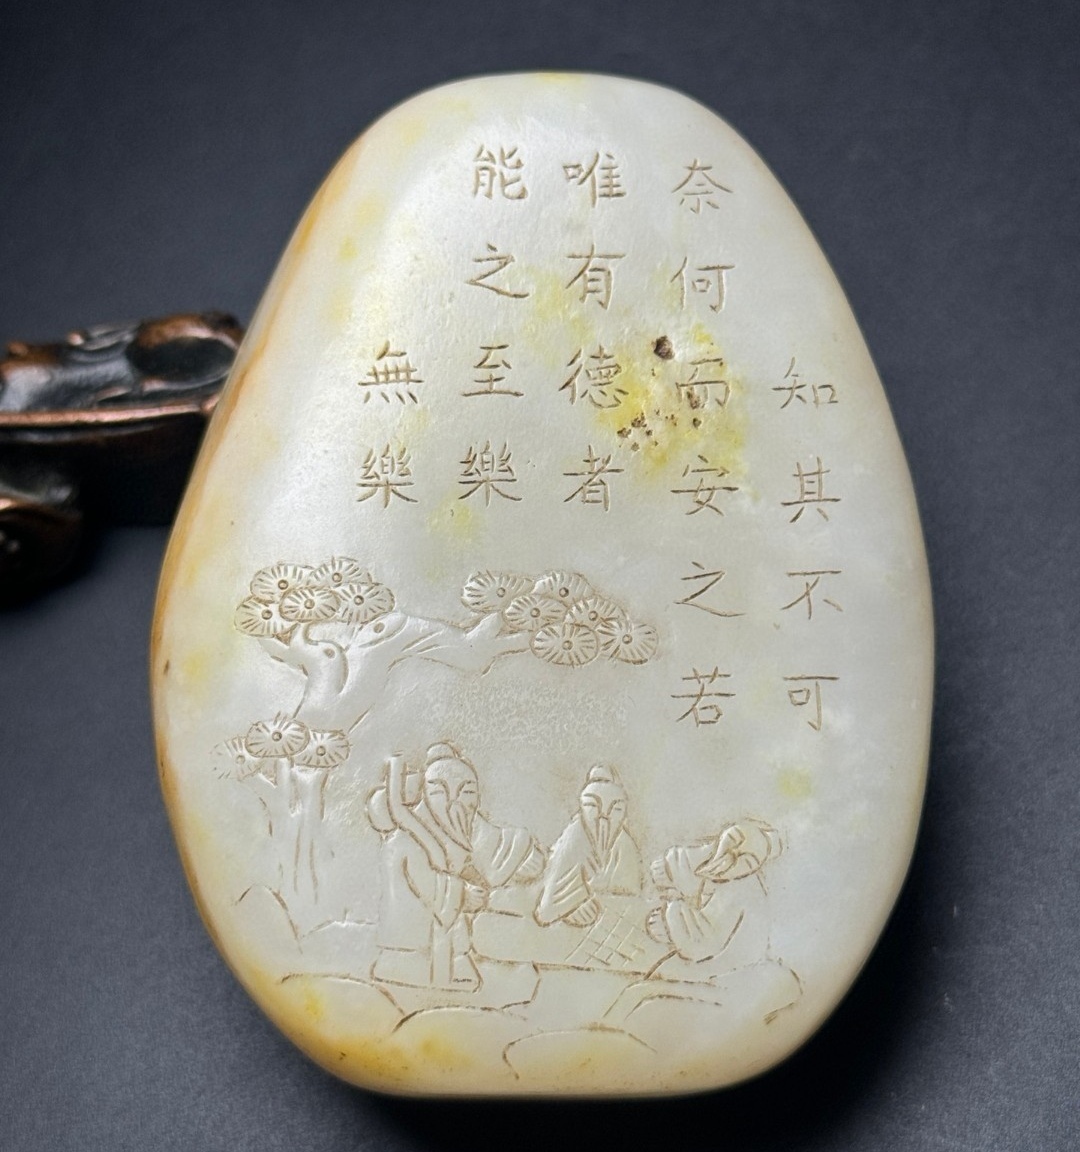 知其不可
奈何而安之若
唯有德者
能之至樂
無樂